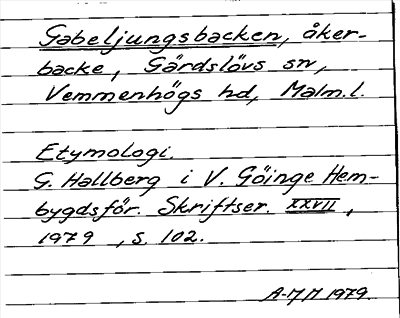 Gabeljungsbacken, åker-
backe, Gärdslövs sn,
Vemmenhögs hd, Malm.l.
Etymologi.
G. Hallberg i V. Göinge Hem-
bygdsför. Skriftser. XXVII,
1979, s. 102.
A-MM 1979.